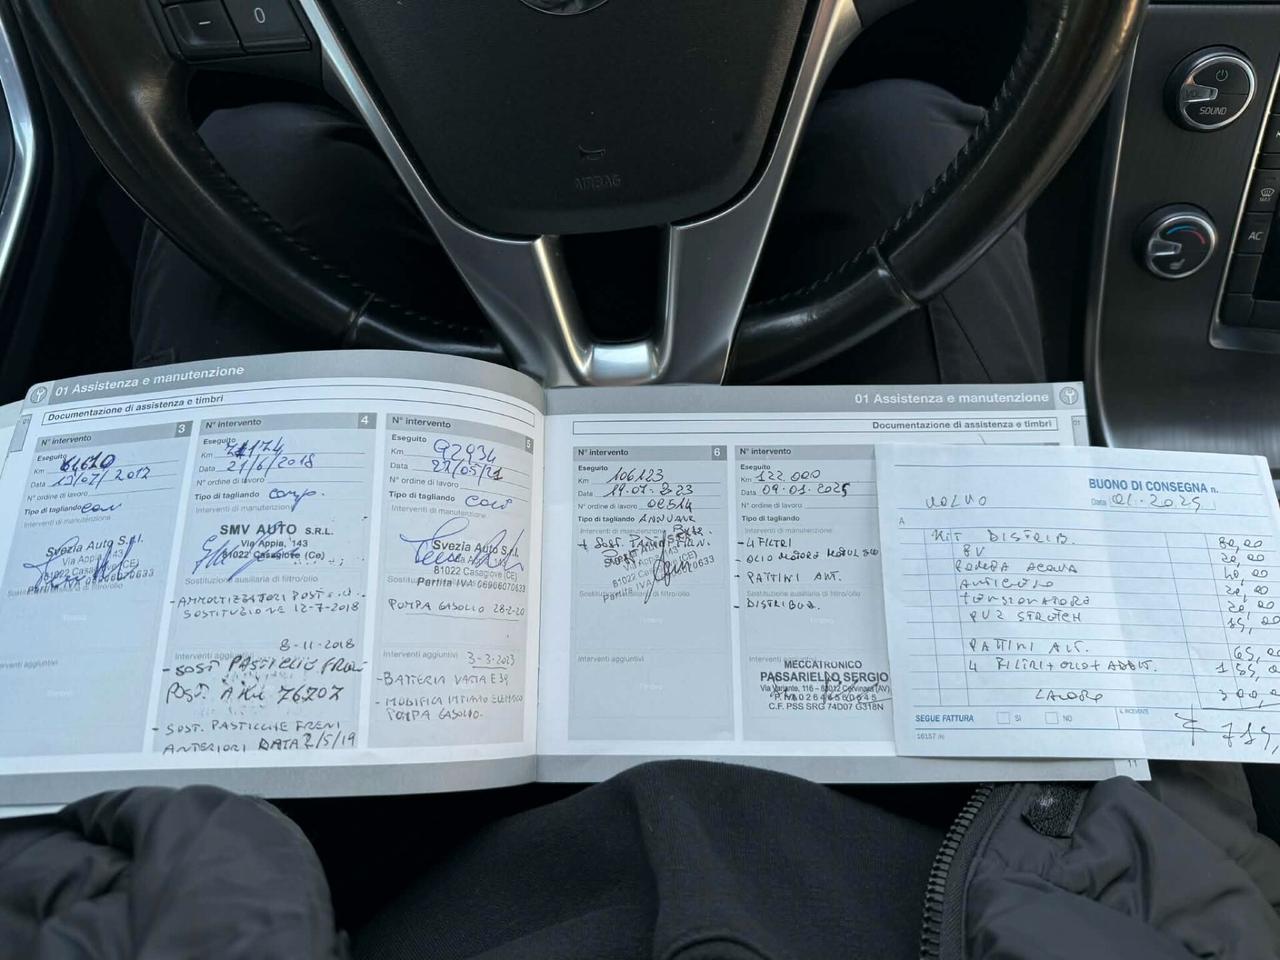 0
AIRBAG
SOUND
MAX
AC
01 Assistenza e manutenzione
Documentazione di assistenza e timbri
N° intervento 3
Eseguito
Km 61610
Data
N° ordine di lavoro
Tipo di tagliando
Interventi di manutenzione
Svezia Auto S.r.l.
Via Appia, 143
81022 Casagiove (CE)
Partita IVA 06906070633
Timbro
N° intervento 4
Eseguito
Km 71174
Data 21/6/2018
N° ordine di lavoro
Tipo di tagliando comp.
Interventi di manutenzione
SMV AUTO S.R.L.
Via Appia, 143
81022 Casagiove (Ce)
Sostituzione ausiliaria di filtro/olio
- AMMORTIZZATORI POST
SOSTITUZIONE 12-7-2018
8-11-2018
- SOST PASTICCHE FRENI
POST. A KM 76207
- SOST. PASTICCHE FRENI
ANTERIORI DATA 2/5/19
N° intervento 5
Eseguito
Km 92934
Data 27/05/21
N° ordine di lavoro
Tipo di tagliando
Interventi di manutenzione
Svezia Auto S.r.l.
Via Appia, 143
81022 Casagiove (CE)
Partita IVA 06906070633
POMPA GASOLIO 28-2-20
Interventi aggiuntivi 3-3-2023
- BATTERIA VARTA E39
- MODIFICA IMPIANTO ELETTRICO
POMPA GASOLIO.
01 Assistenza e manutenzione
Documentazione di assistenza e timbri
N° intervento 6
Eseguito
Km 106123
Data 19.07.2023
N° ordine di lavoro 02514
Tipo di tagliando ANNUALE
Interventi di manutenzione
81022 Casagiove (CE)
Partita IVA 06906070633
Sostituzione ausiliaria di filtro/olio
Timbro
Interventi aggiuntivi
Timbro
N° intervento
Eseguito
Km 122.000
Data 09.01.2025
N° ordine di lavoro
Tipo di tagliando
Interventi di manutenzione
- 4 FILTRI
- OLIO MOTORE MOTUL
- PATTINI ANT.
Sostituzione ausiliaria di filtro/olio
- DISTRIBUZ.
MECCATRONICO
PASSARIELLO SERGIO
Via Variante, 116 - 83012 Cervinara (AV)
C.F. PSS SRG 74D07 G318N
11
BUONO DI CONSEGNA n.
VOLVO
Data 01-2025
A
KIT DISTRIB. 80,00
POMPA ACQUA 40,00
ANTIGELO
TENSIONATORE
PATTINI ANT. 65,00
4 FILTRI + OLIO + ADDIT.
LAVORO 300
SEGUE FATTURA SI NO
IL RICEVENTE